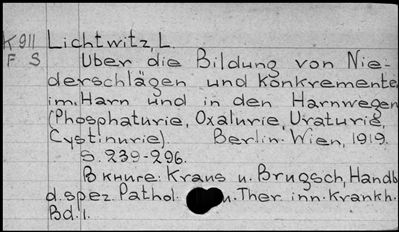 K 911 Lichtwitz, L.
F S Über die Bildung von Nie-
derschlägen und Konkremente
im Harn und in den Harnwegen
(Phosphaturie, Oxalurie, Uraturie,
Cystinurie). Berlin-Wien, 1919.
S. 239-296.
В книге: Kraus u. Brugsch, Handb
d. spez. Pathol. u. Ther. inn. Krankh.
Bd. 1.